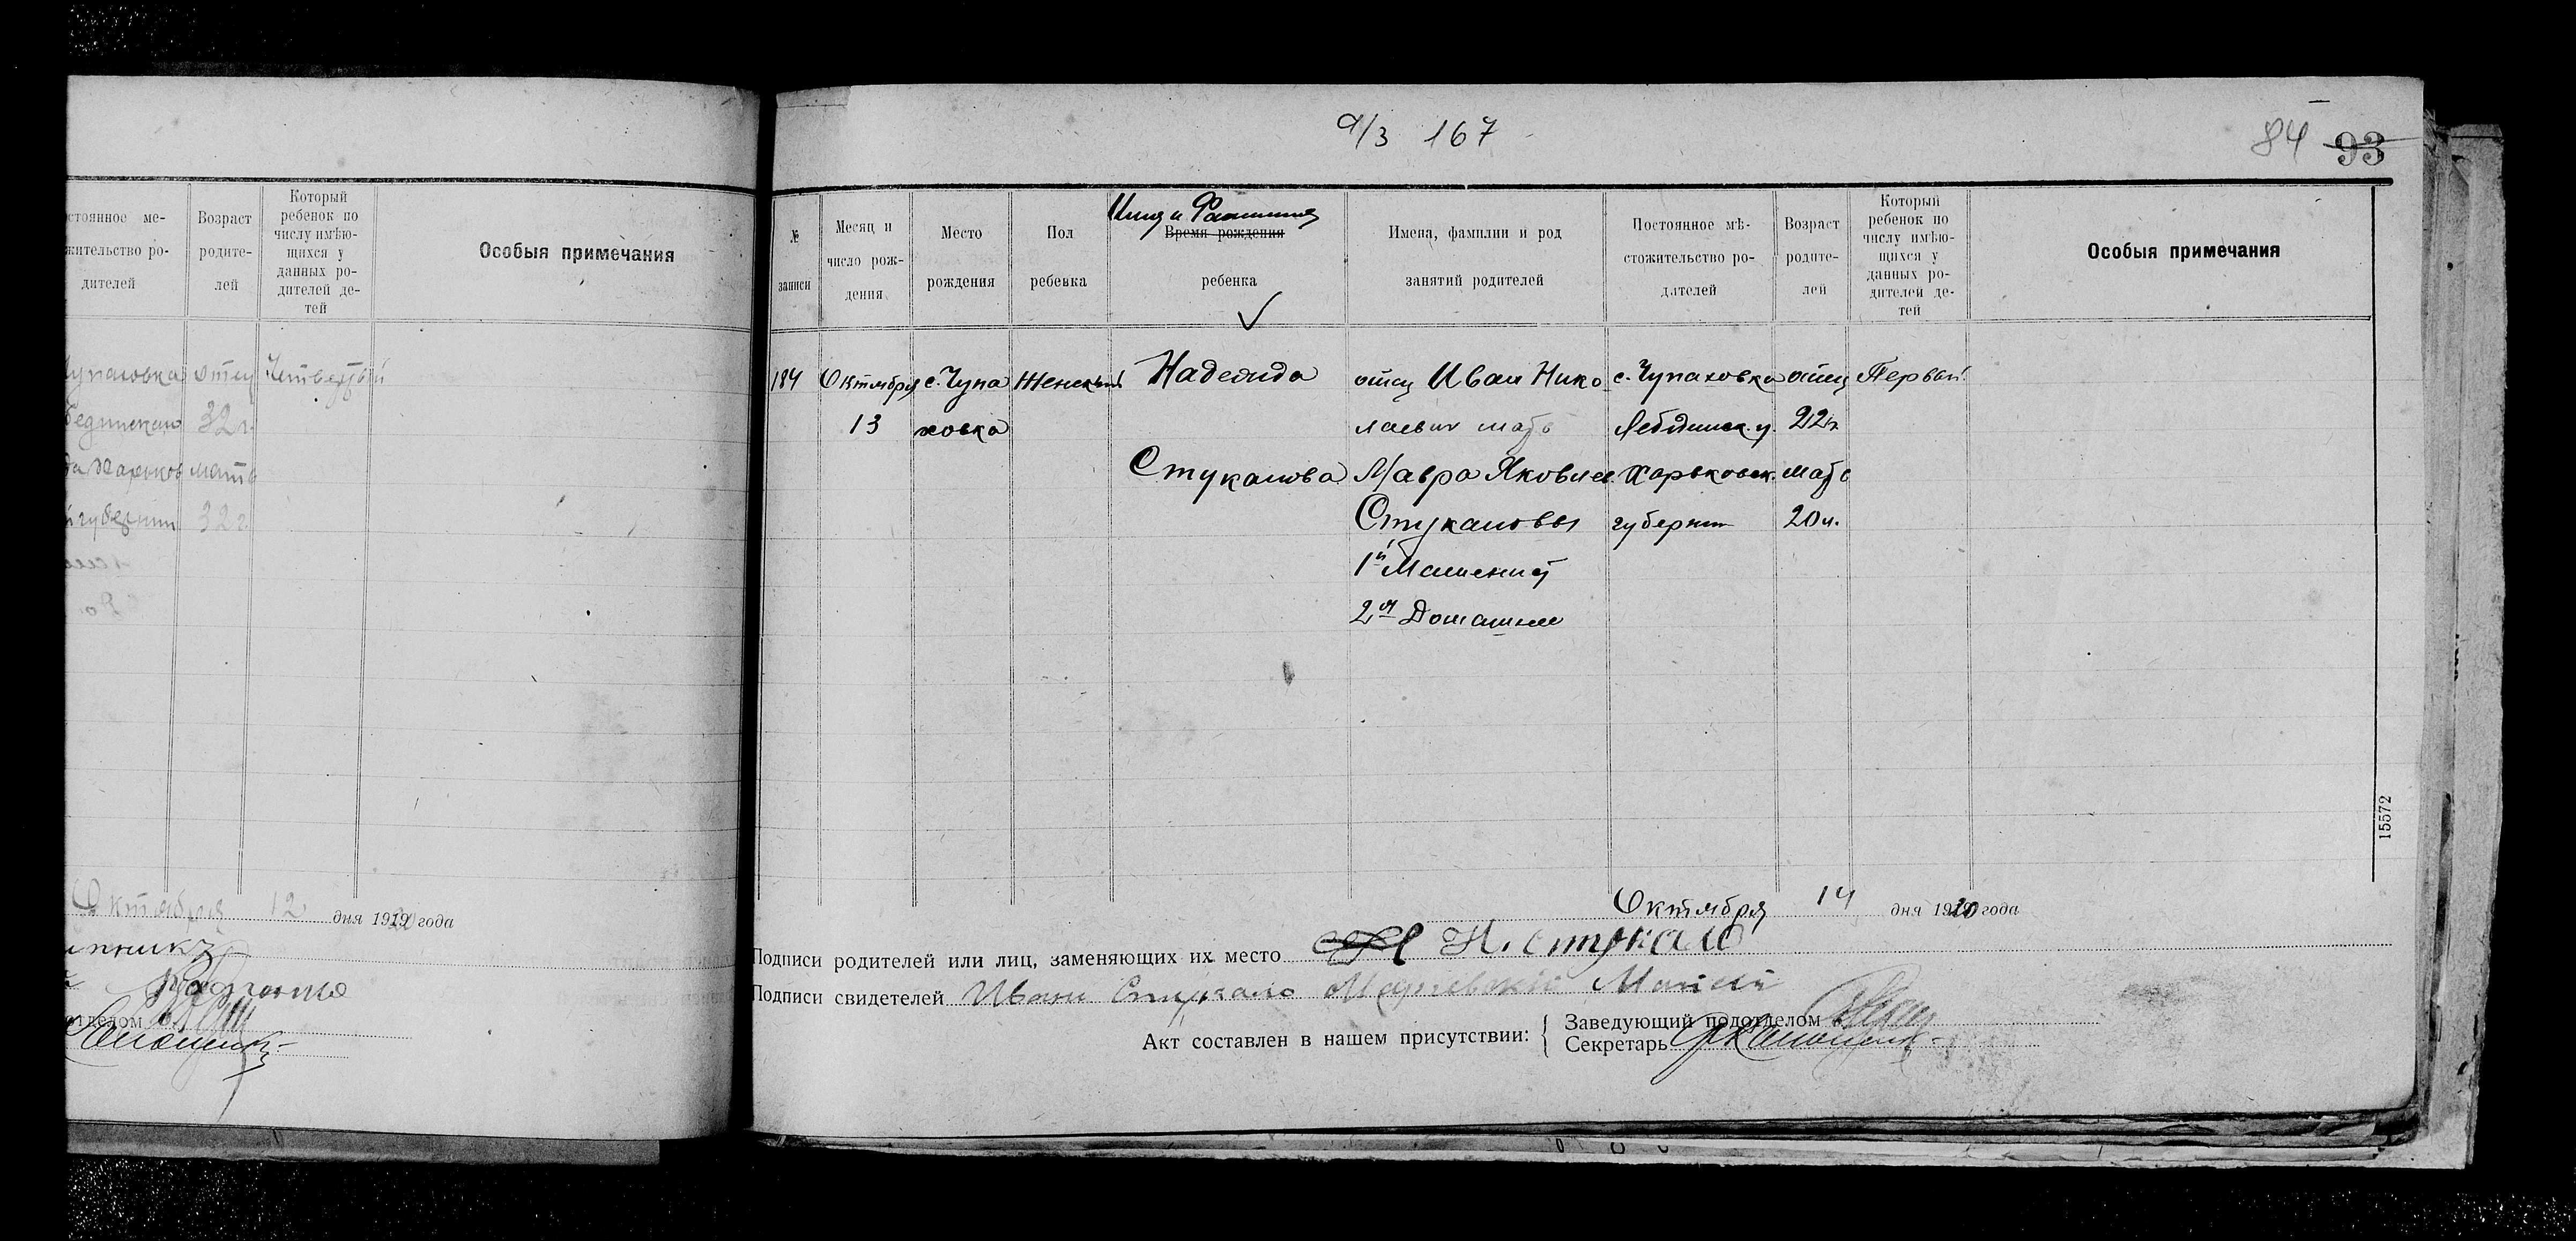 стоянное ме-
жительство ро-
дителей
Возраст
родите-
лей
Который
ребенок по
числу имѣю-
щихся у
данных ро-
дителей де-
тей
Особыя примечания
отец Четвертый
32 г.
Харьков мать
губернии 32 г
Октября 12 дня 1920 года
а/з 167
84 93
№
записи
Месяц и
число рож-
дения
Место
рождения
Пол
ребенка
Имя и Фамилия
Время рождения
ребенка
Имена, фамилии и род
занятий родителей
Постоянное мѣ-
стожительство ро-
дителей
Возраст
родите-
лей
Который
ребенок по
числу имѣю-
щихся у
данных ро-
дителей де-
тей
Особыя примечания
184 Октября с. Чупа Женский Надежда отец Иван Нико с. Чупаховка отец Первый
13 ховка лаевич мать Лебединск. у. 22 г.
Стукалова Мавра Яковлев. Харьковск. мать
Стукаловы губернии 20 л.
1й Машенист
2я Домашнее
15572
Октября 14 дня 1920 года
Подписи родителей или лиц, заменяющих их место Н. Стукало
Подписи свидетелей Иван Стукало
Акт составлен в нашем присутствии:
Заведующий подотделом
Секретарь